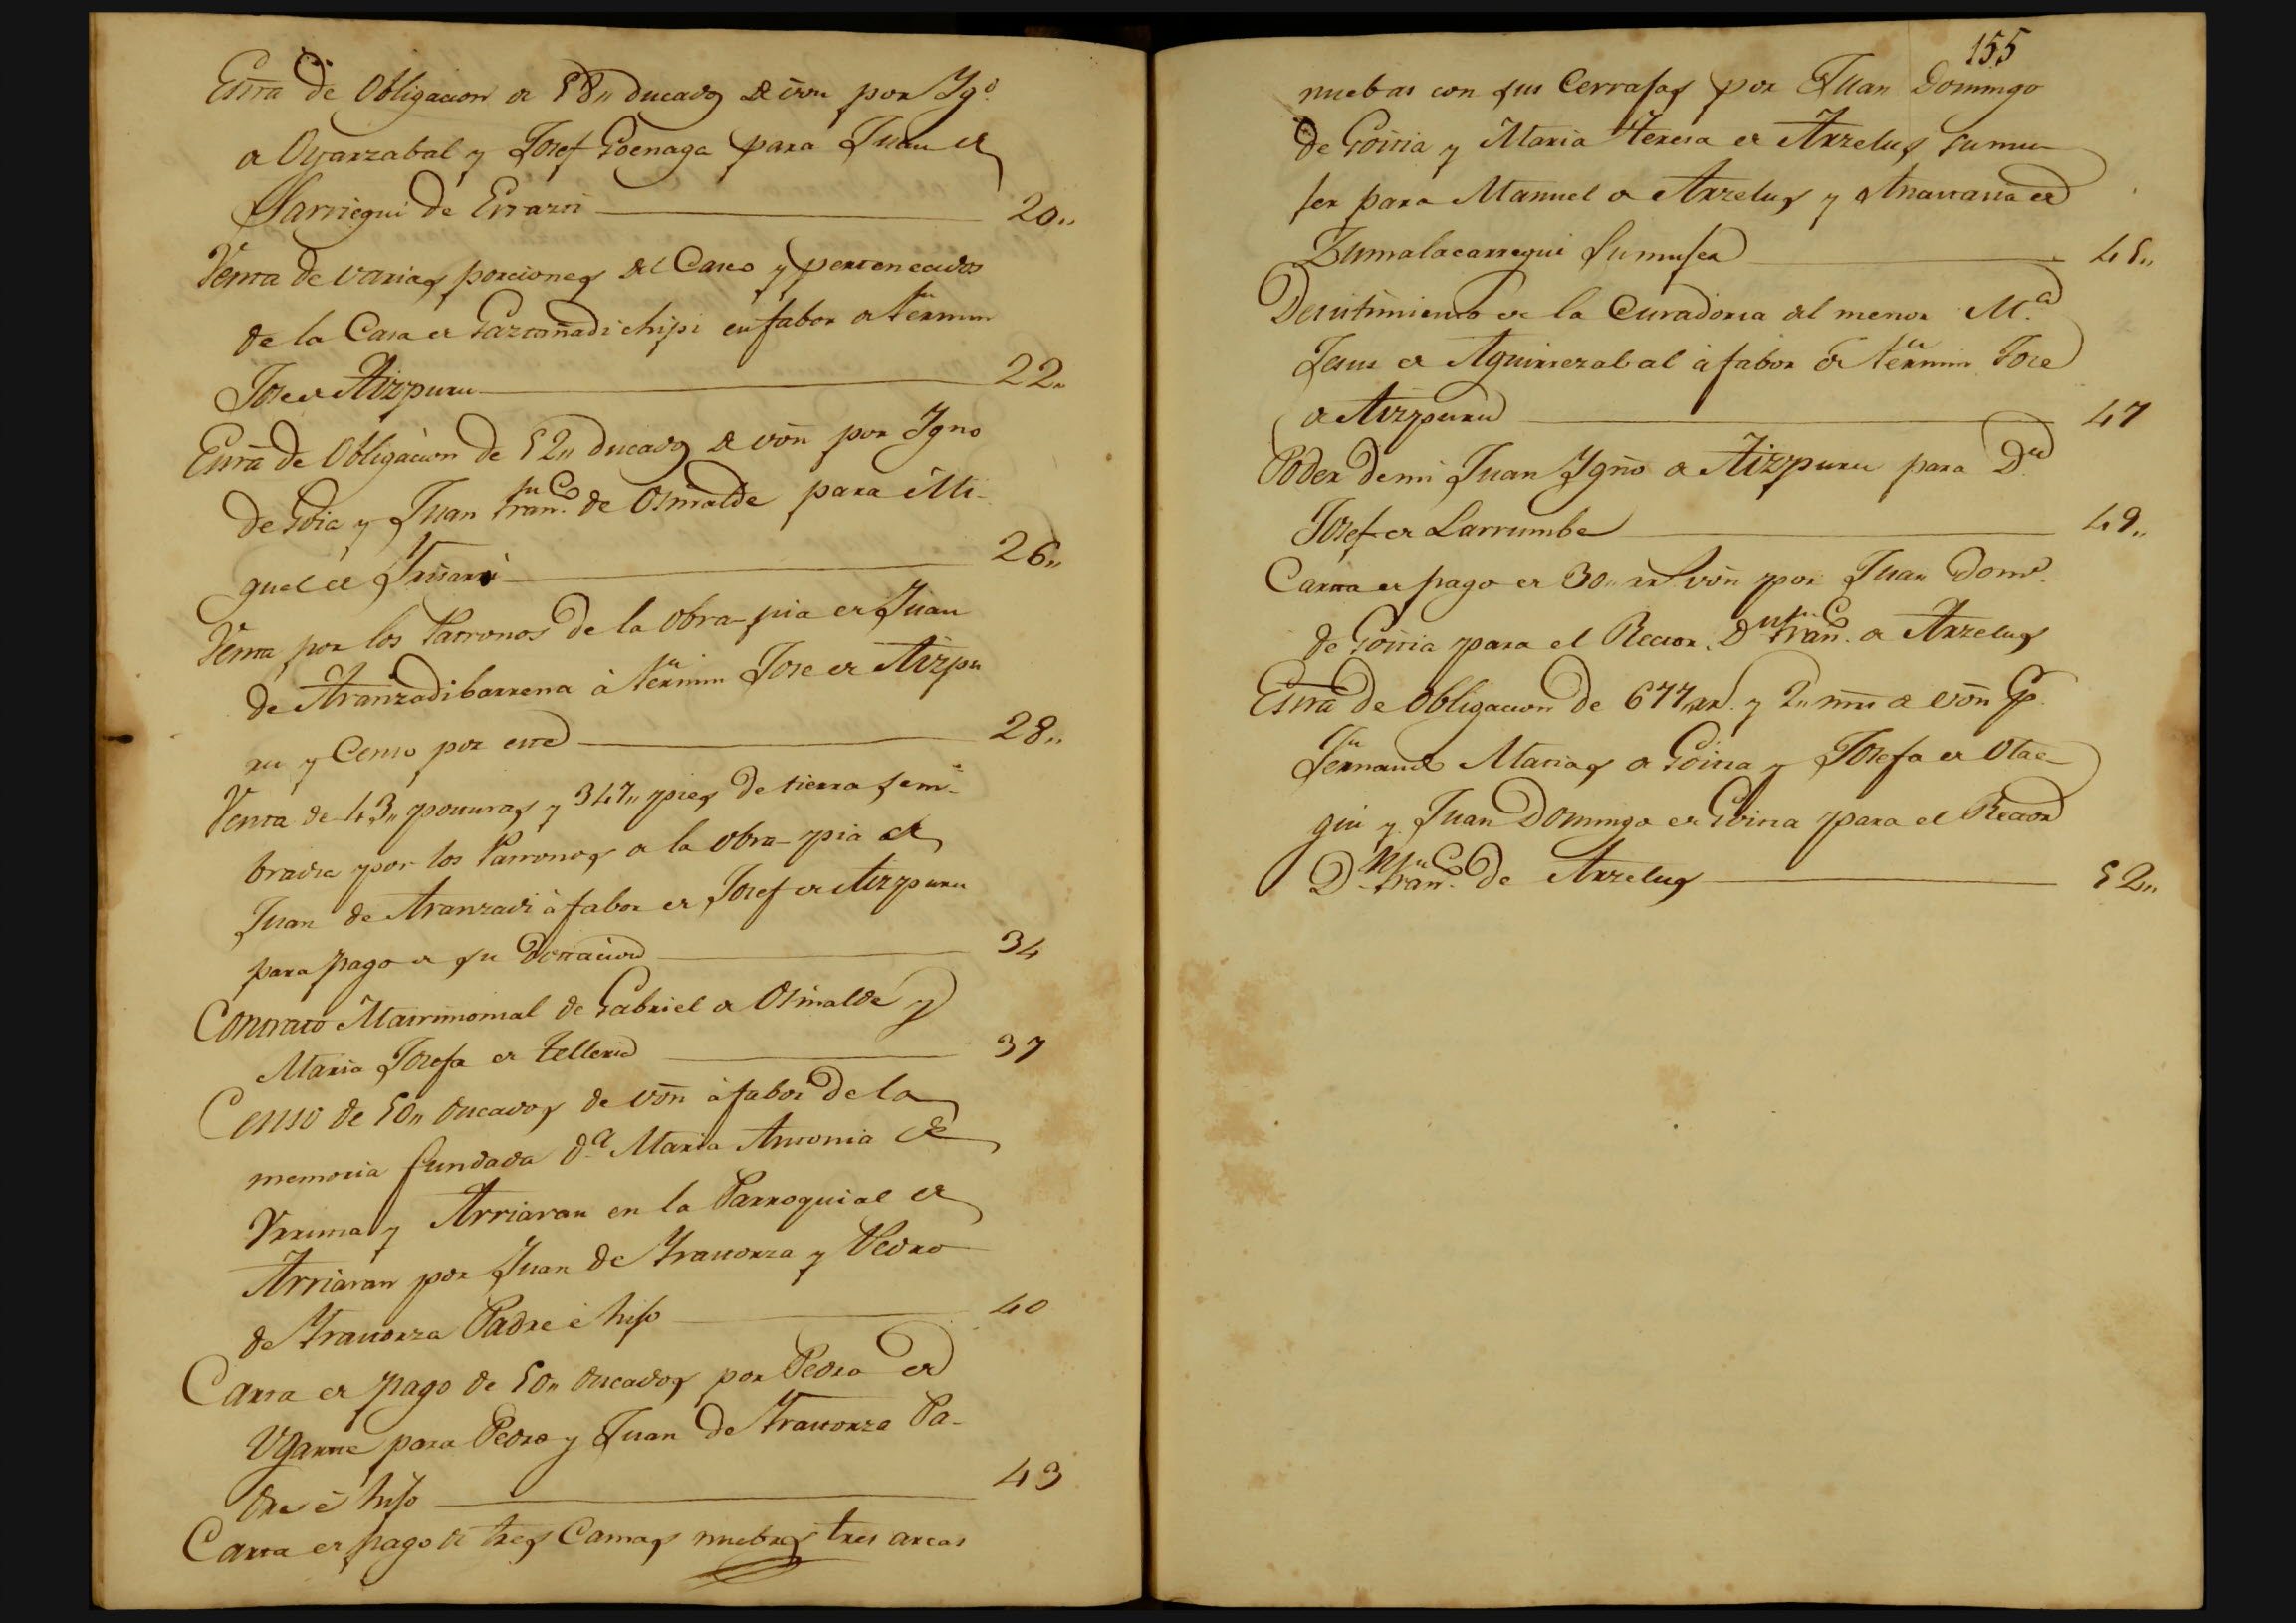 Esñra de Obligacion de 58,, ducados de vōn por Ygo
de Oyarzabal y Josef Goenaga para Juan de
Sarriegui de Errarti 20,,
Venta de varias porciones del Caseo y pertenecidos
de la Casa de Gaztañadi chipi en fabor de Fermin
Jose de Aizpuru 22,,
Esñra de Obligacion de 52,, ducados de vōn por Ygno
de Goia y Juan Franco de Osinalde para Mi-
guel de 26,,
Venta por los Patronos de la Obra-pia de Juan
de Aranzadibarrena à Fermin Jose de Aizpu
ru y Censo por este 28,,
Venta de 43,, posturas y 347,, pies de tierra sem-
bradia por los Patronos de la Obra-pia de
Juan de Aranzadi à fabor de Josef de Aizpuru
para pago de su Dotacion 34
Contrato Matrimonial de Gabriel de Osinalde y
Maria Josefa de Telleria 37
Censo de 50,, ducados de vōn à fabor de la
memoria fundada Da Maria Antonia de
Vrruma y Arriaran en la Parroquial de
Arriaran por Juan de Yrastorza y Pedro
de Yrastorza Padre è hijo 40
Carta de pago de 50,, ducados por Pedro de
Vgarte para Pedro y Juan de Yrastorza Pa-
dre è hijo 43
Carta de pago de tres Camas nuebas tres arcas
155
nuebas con sus Cerrajas por Juan Domingo
de Goiria y Maria Teresa de Arzelus su mu-
jer para Manuel de Arzelus y Anastasia de
Zumalacarregui su mujer 45,,
Desistimiento de la Curadoria del menor Ma
Jesus de Aguirrezabal à fabor de Fermin Jose
de Aizpuru 47
Poder de mi Juan Ygño de Aizpuru para Dn
Josef de Larrumbe 49,,
Carta de pago de 30,, rs vōn por Juan Domo
de Goiria para el Rector Dn Franco de Arzelus
Esñra de Obligacion de 677 rs. y 2,, mrs de vōn Pr.
Fernando Matias de Goiria y Josefa de Otae-
gui y Juan Domingo de Goiria para el Rector
Dn Franco de Arzelus 52,,